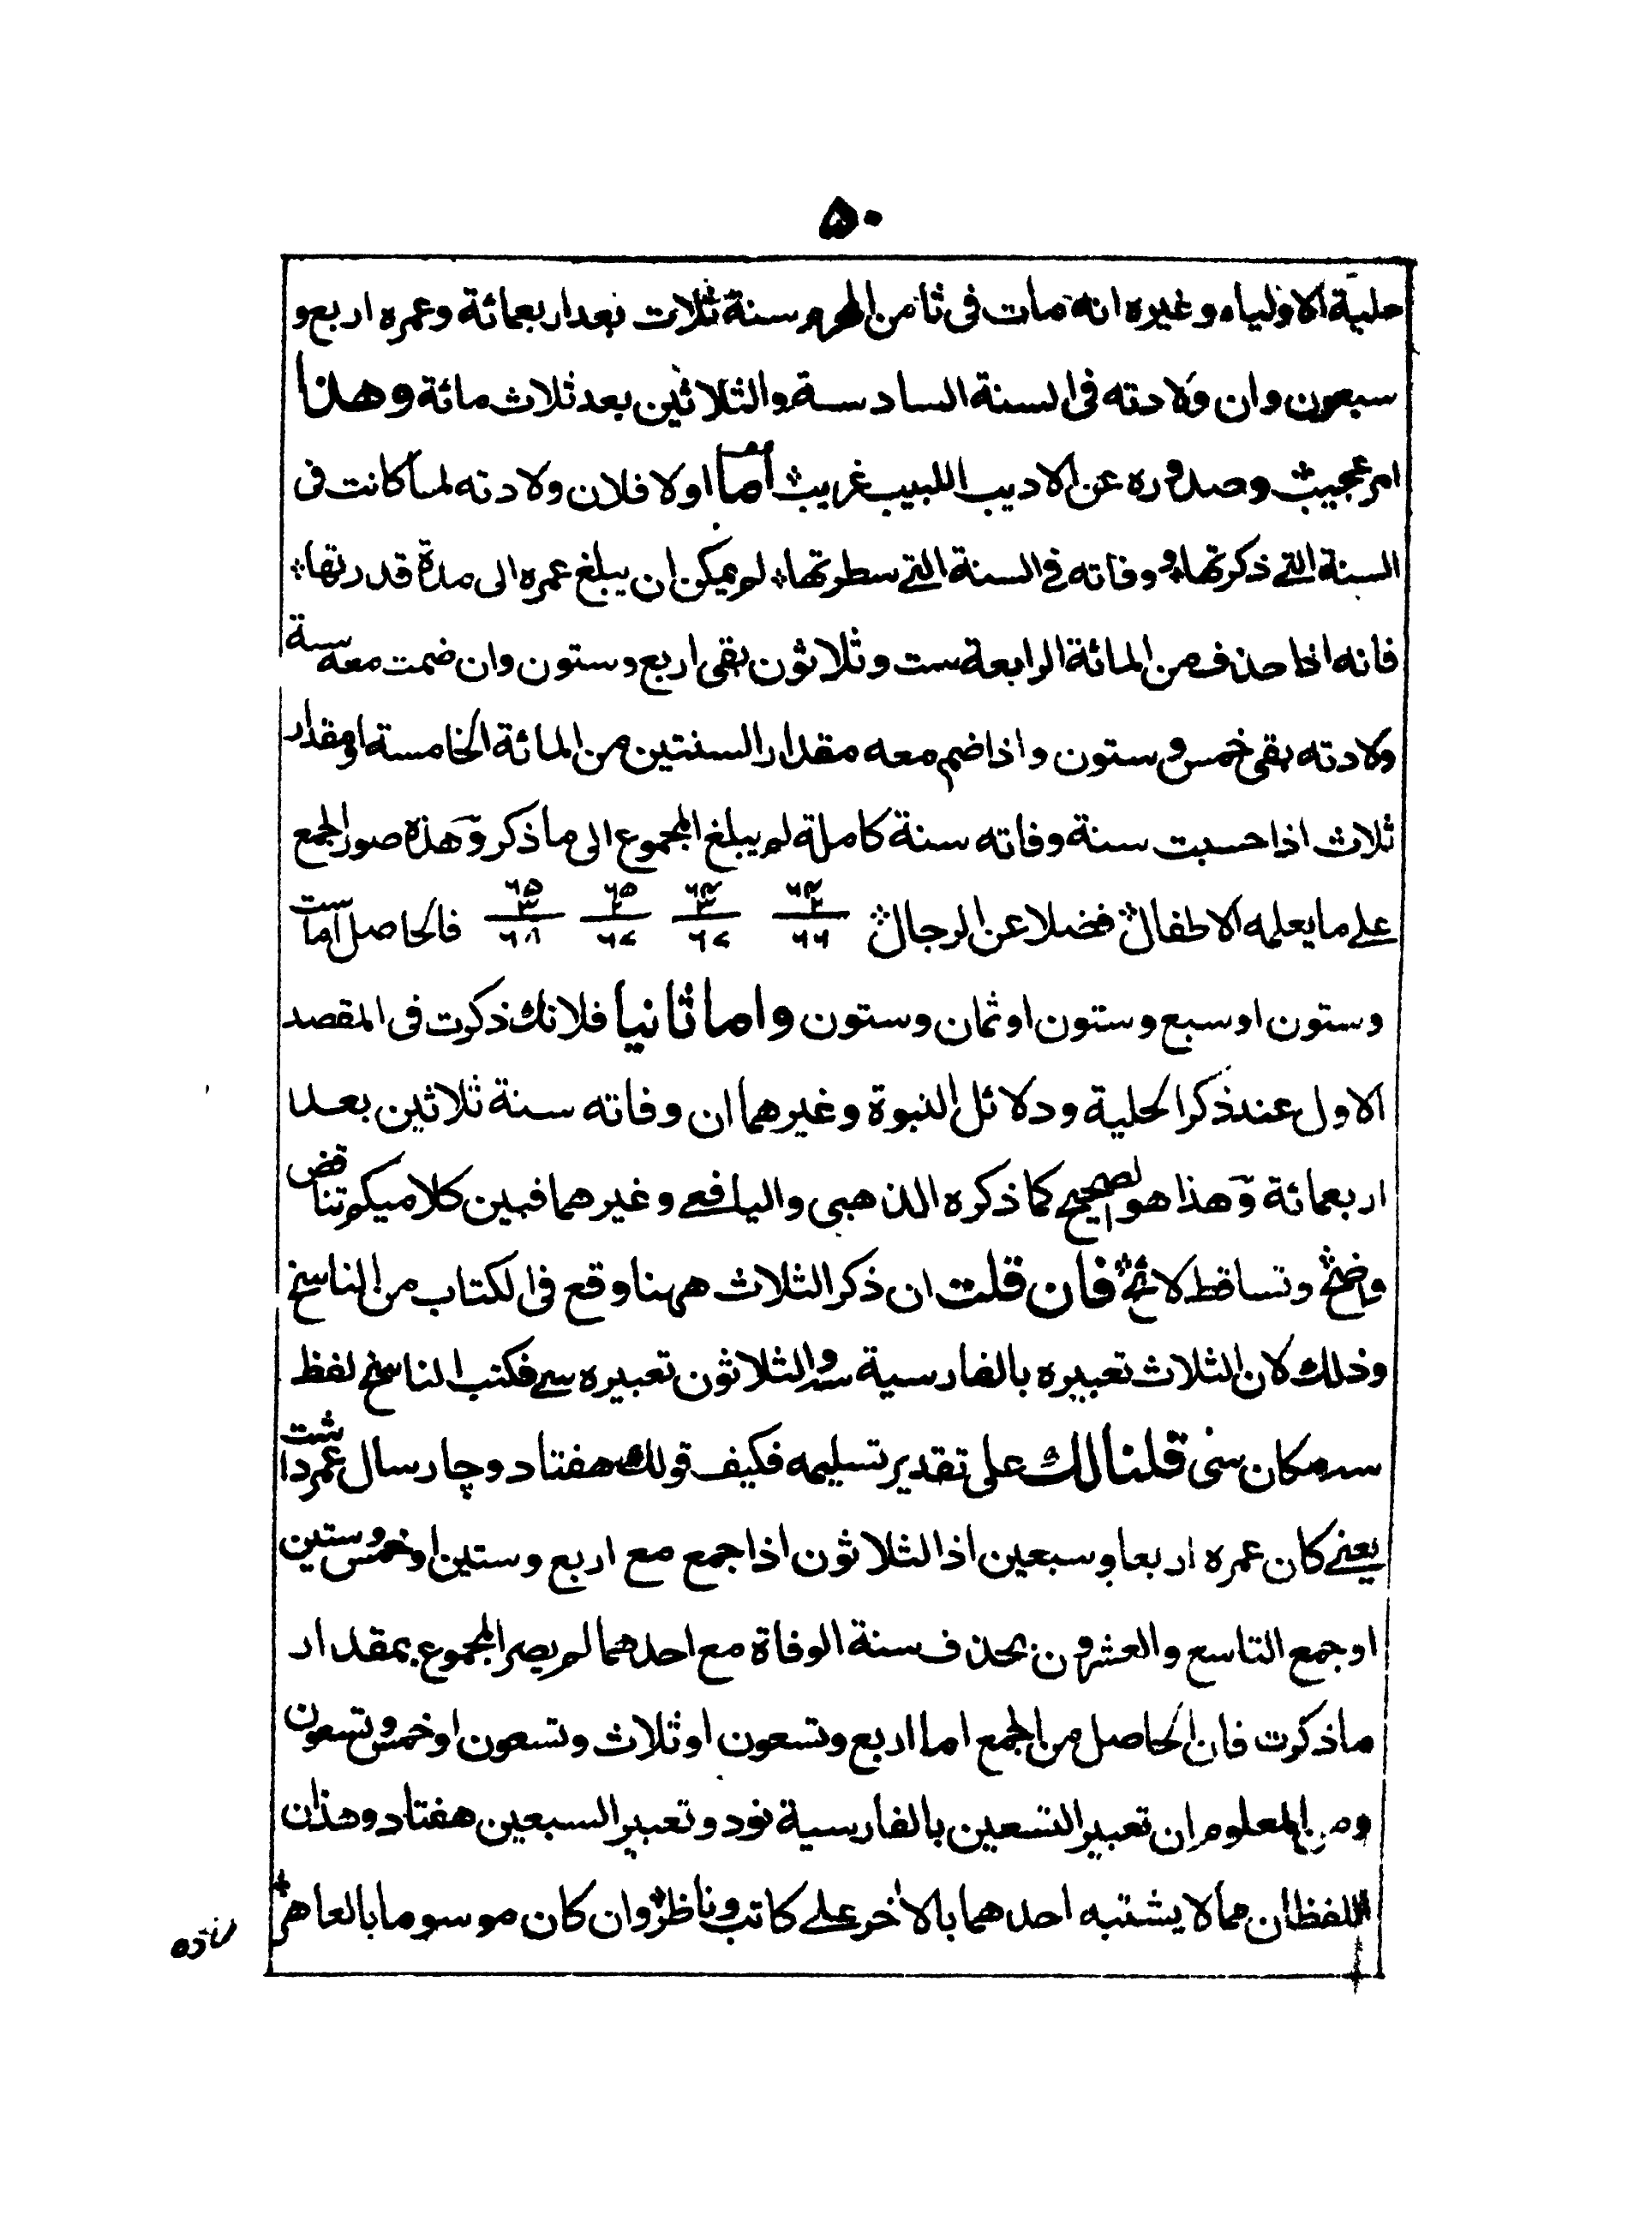 ۵۰
حلية الاولياء وغيره انه مات فى ثامن المحرم سنة ثلاث بعد اربعمائة وعمره اربع و
سبعون وان ولادته فى السنة السادسة والثلاثين بعد ثلاث مائة وهذا
امر عجيب وصدوره عن الاديب اللبيب غريب اما اولا فلان ولادته لما كانت فى
السنة التے ذكرتها و وفاته فے السنة التے سطرتها لم يمكن ان يبلغ عمره الى مدة قدرتها
فانه اذا حذف من المائة الرابعة ست وثلاثون بقى اربع وستون وان ضمت معه سنة
ولادته بقى خمس وستون واذا ضم معه مقدار السنتين من المائة الخامسة او مقدار
ثلاث اذا حسبت سنة وفاته سنة كاملة لم يبلغ المجموع الى ما ذكر وهذه صور الجمع
علے ما يعلمه الاطفال فضلا عن الرجال ۶۴ ۲ ۶۶ ۶۴ ۳ ۶۷ ۶۵ ۲ ۶۷ ۶۵ ۳ ۶۸ فالحاصل اما ست
وستون او سبع وستون او ثمان وستون واما ثانيا فلانك ذكرت فى المقصد
الاول عند ذكر الحلية ودلائل النبوة وغيرهما ان وفاته سنة ثلاثين بعد
اربعمائة وهذا هو الصحيح كما ذكره الذهبى واليافعے وغيرهما فبين كلاميكم تناقض
واضح وتساقط لائح فان قلت ان ذكر الثلاث ههنا وقع فى الكتاب من الناسخ
وذلك لان الثلاث تعبيره بالفارسية سه والثلاثون تعبيره سے فكتب الناسخ لفظ
سه مكان سى قلنا لك على تقدير تسليمه فكيف قولك هفتاد وچار سال عمر داشت
يعنے كان عمره اربعا وسبعين اذ الثلاثون اذا جمع مع اربع وستين او خمس وستين
او جمع التاسع والعشرون بحذف سنة الوفاة مع احدهما لم يصر المجموع بمقدار
ما ذكرت فان الحاصل من الجمع اما اربع وتسعون او ثلاث وتسعون او خمس وتسعون
ومن المعلوم ان تعبير التسعين بالفارسية نود وتعبير السبعين هفتاد وهذان
اللفظان مما لا يشتبه احدهما بالآخر علے كاتب وناظر وان كان موسوما بالعاهر